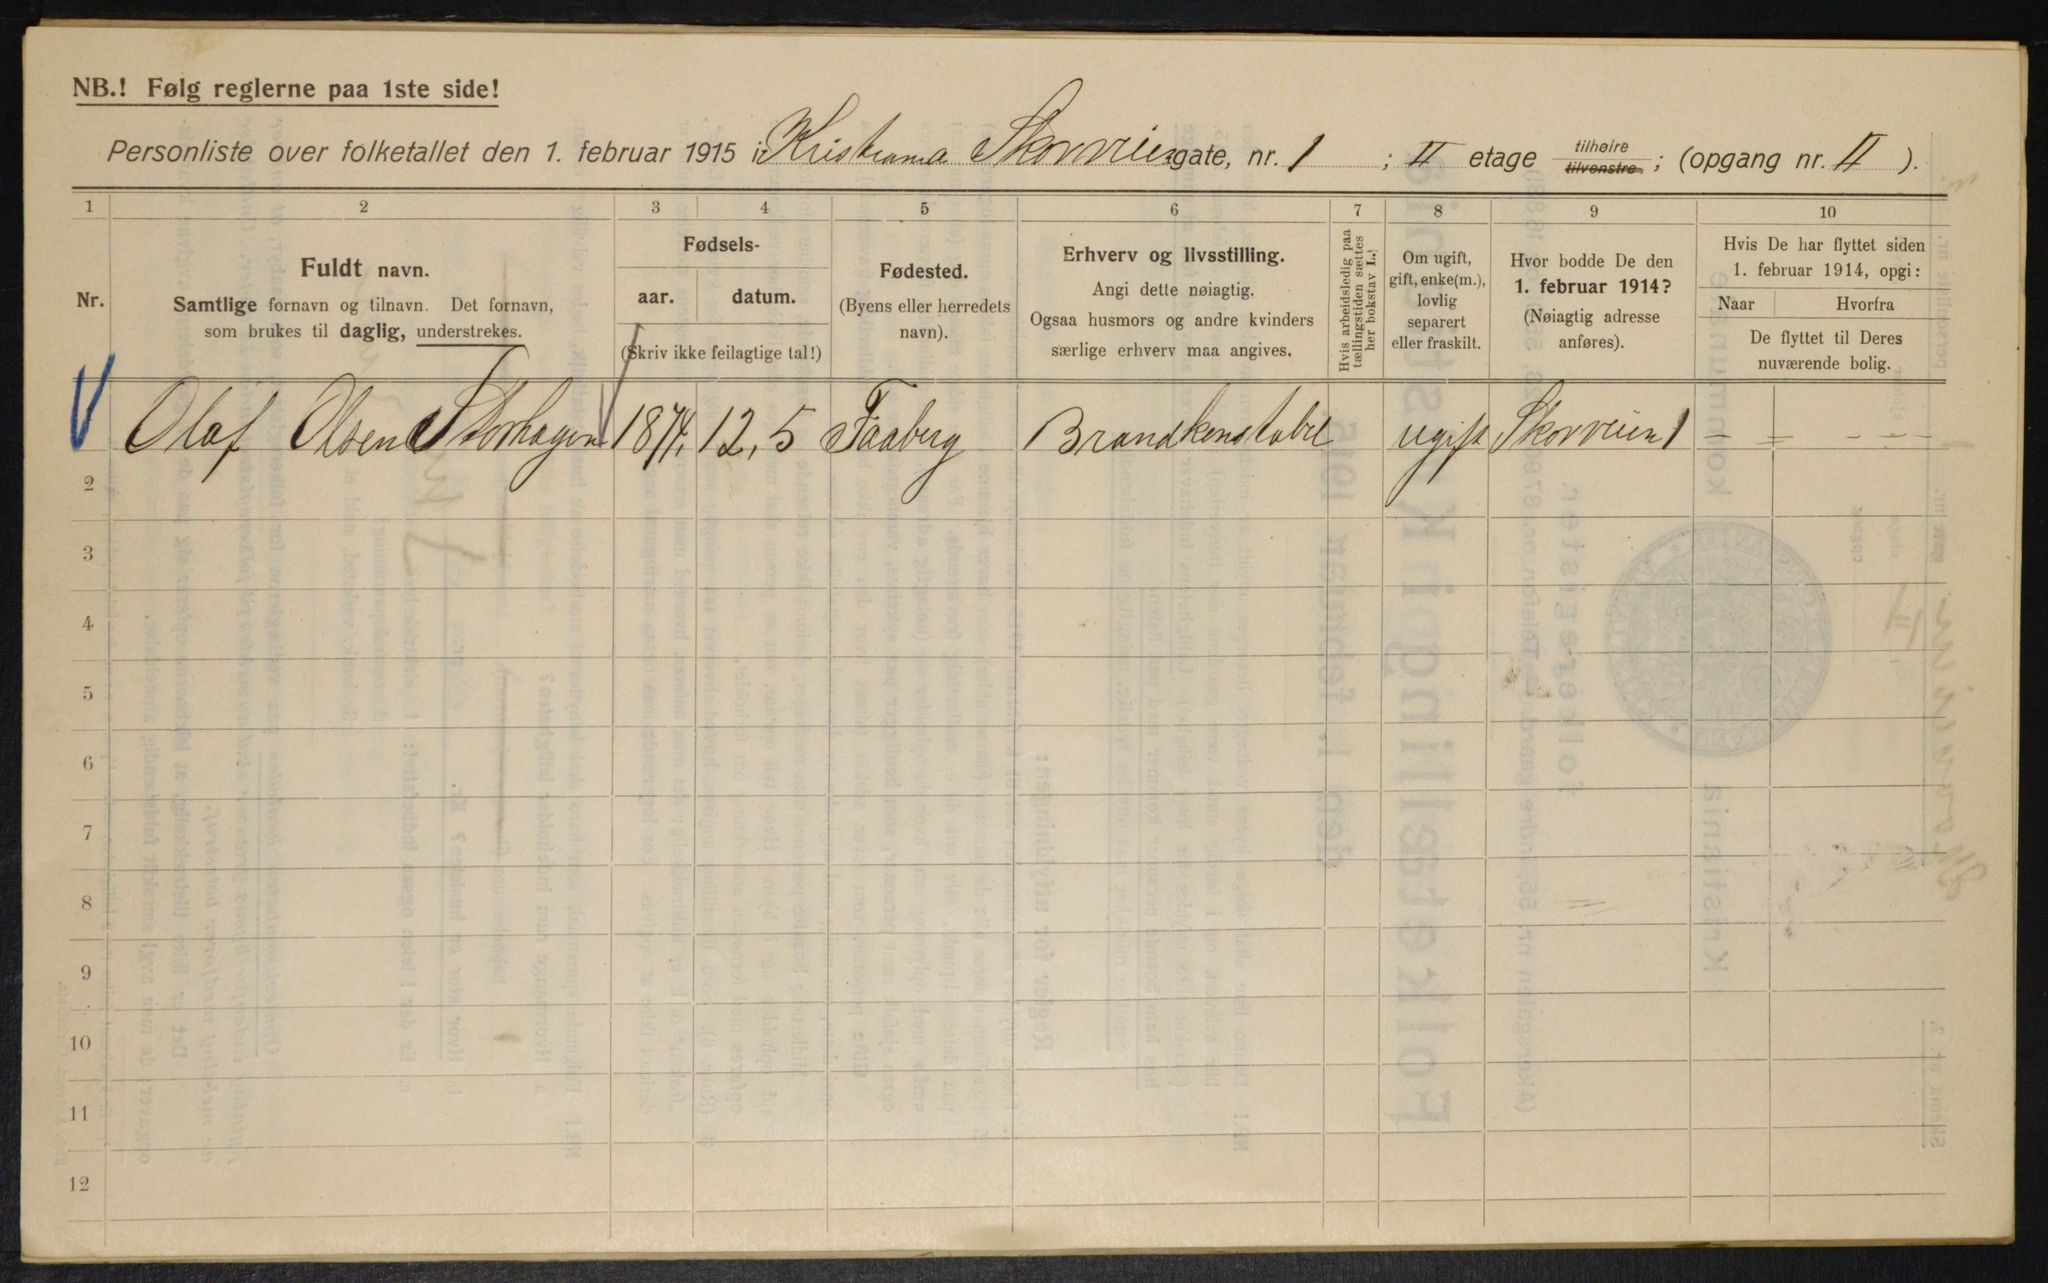 NB.! Følg reglerne paa 1ste side!
Personliste over folketallet den 1. februar 1915 i: Kristiania Skovveien gate, nr. 1 ; II etage tilhøire tilvenstre ; (opgang nr. II ).
1 2 3 4 5 6 7 8 9 10
Nr.
Fuldt navn.
Samtlige fornavn og tilnavn. Det fornavn,
som brukes til daglig, understrekes.
Fødsels-
aar. datum.
(Skriv ikke feilagtige tal!)
Fødested.
(Byens eller herredets
navn).
Erhverv og livsstilling.
Angi dette nøiagtig.
Ogsaa husmors og andre kvinders
særlige erhverv maa angives.
Hvis arbeidsledig paa
tællingstiden sættes
her bokstav L.
Om ugift,
gift, enke(m.),
lovlig
separert
eller fraskilt.
Hvor bodde De den
1. februar 1914?
(Nøiagtig adresse
anføres).
Hvis De har flyttet siden
1. februar 1914, opgi:
Naar Hvorfra
De flyttet til Deres
nuværende bolig.
Olaf Olsen Storhagen 1874. 12,5 Faaberg Brandkonstabel ugift Skovveien 1 – – – –
2
3
4
5
6
7
8
9
10
11
12